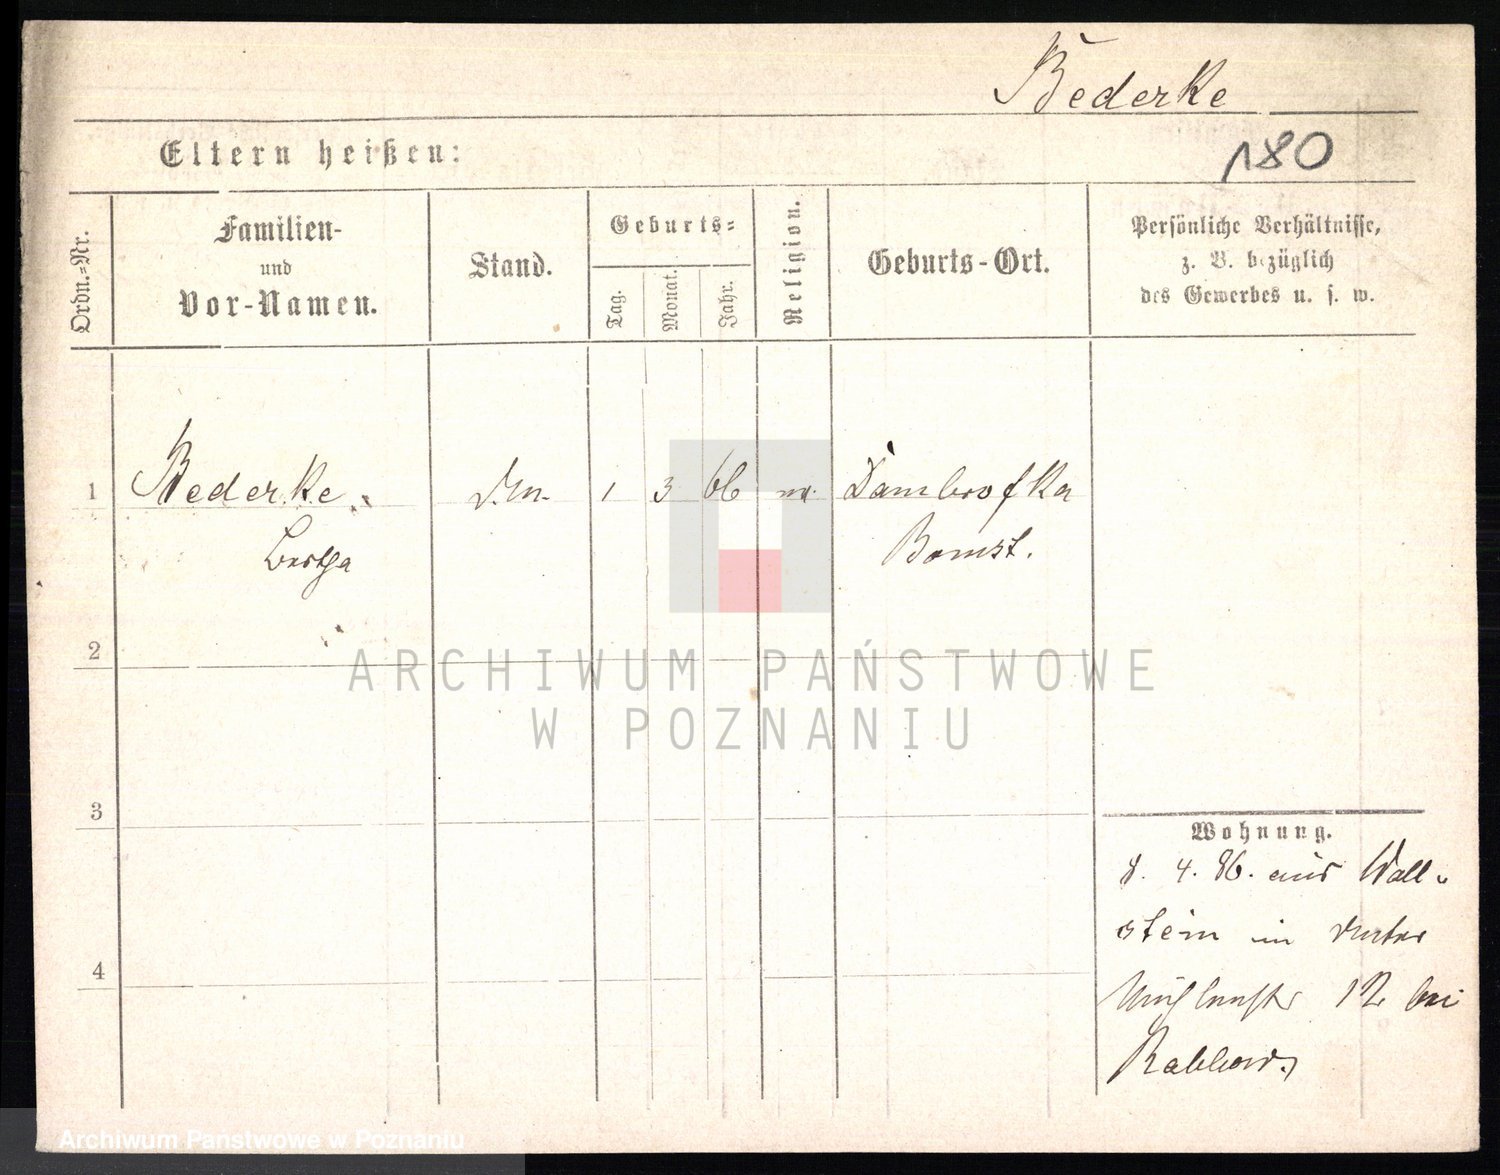 Bederke
180
Eltern heißen:
Ordn.=Nr.
Familien-
und
Vor-Namen.
Stand.
Geburts=
Tag.
Monat.
Jahr.
Religion.
Geburts-Ort.
Persönliche Verhältnisse,
z. B. bezüglich
des Gewerbes u. s. w.
1 Bederke 1 3 66 Dambrofka
Bertha Bomst.
2
3
4
Wohnung.
8. 4. 86. aus Wall-
stein in
Mühlenstr 12 bei
ARCHIWUM PAŃSTWOWE
W POZNANIU
Archiwum Państwowe w Poznaniu